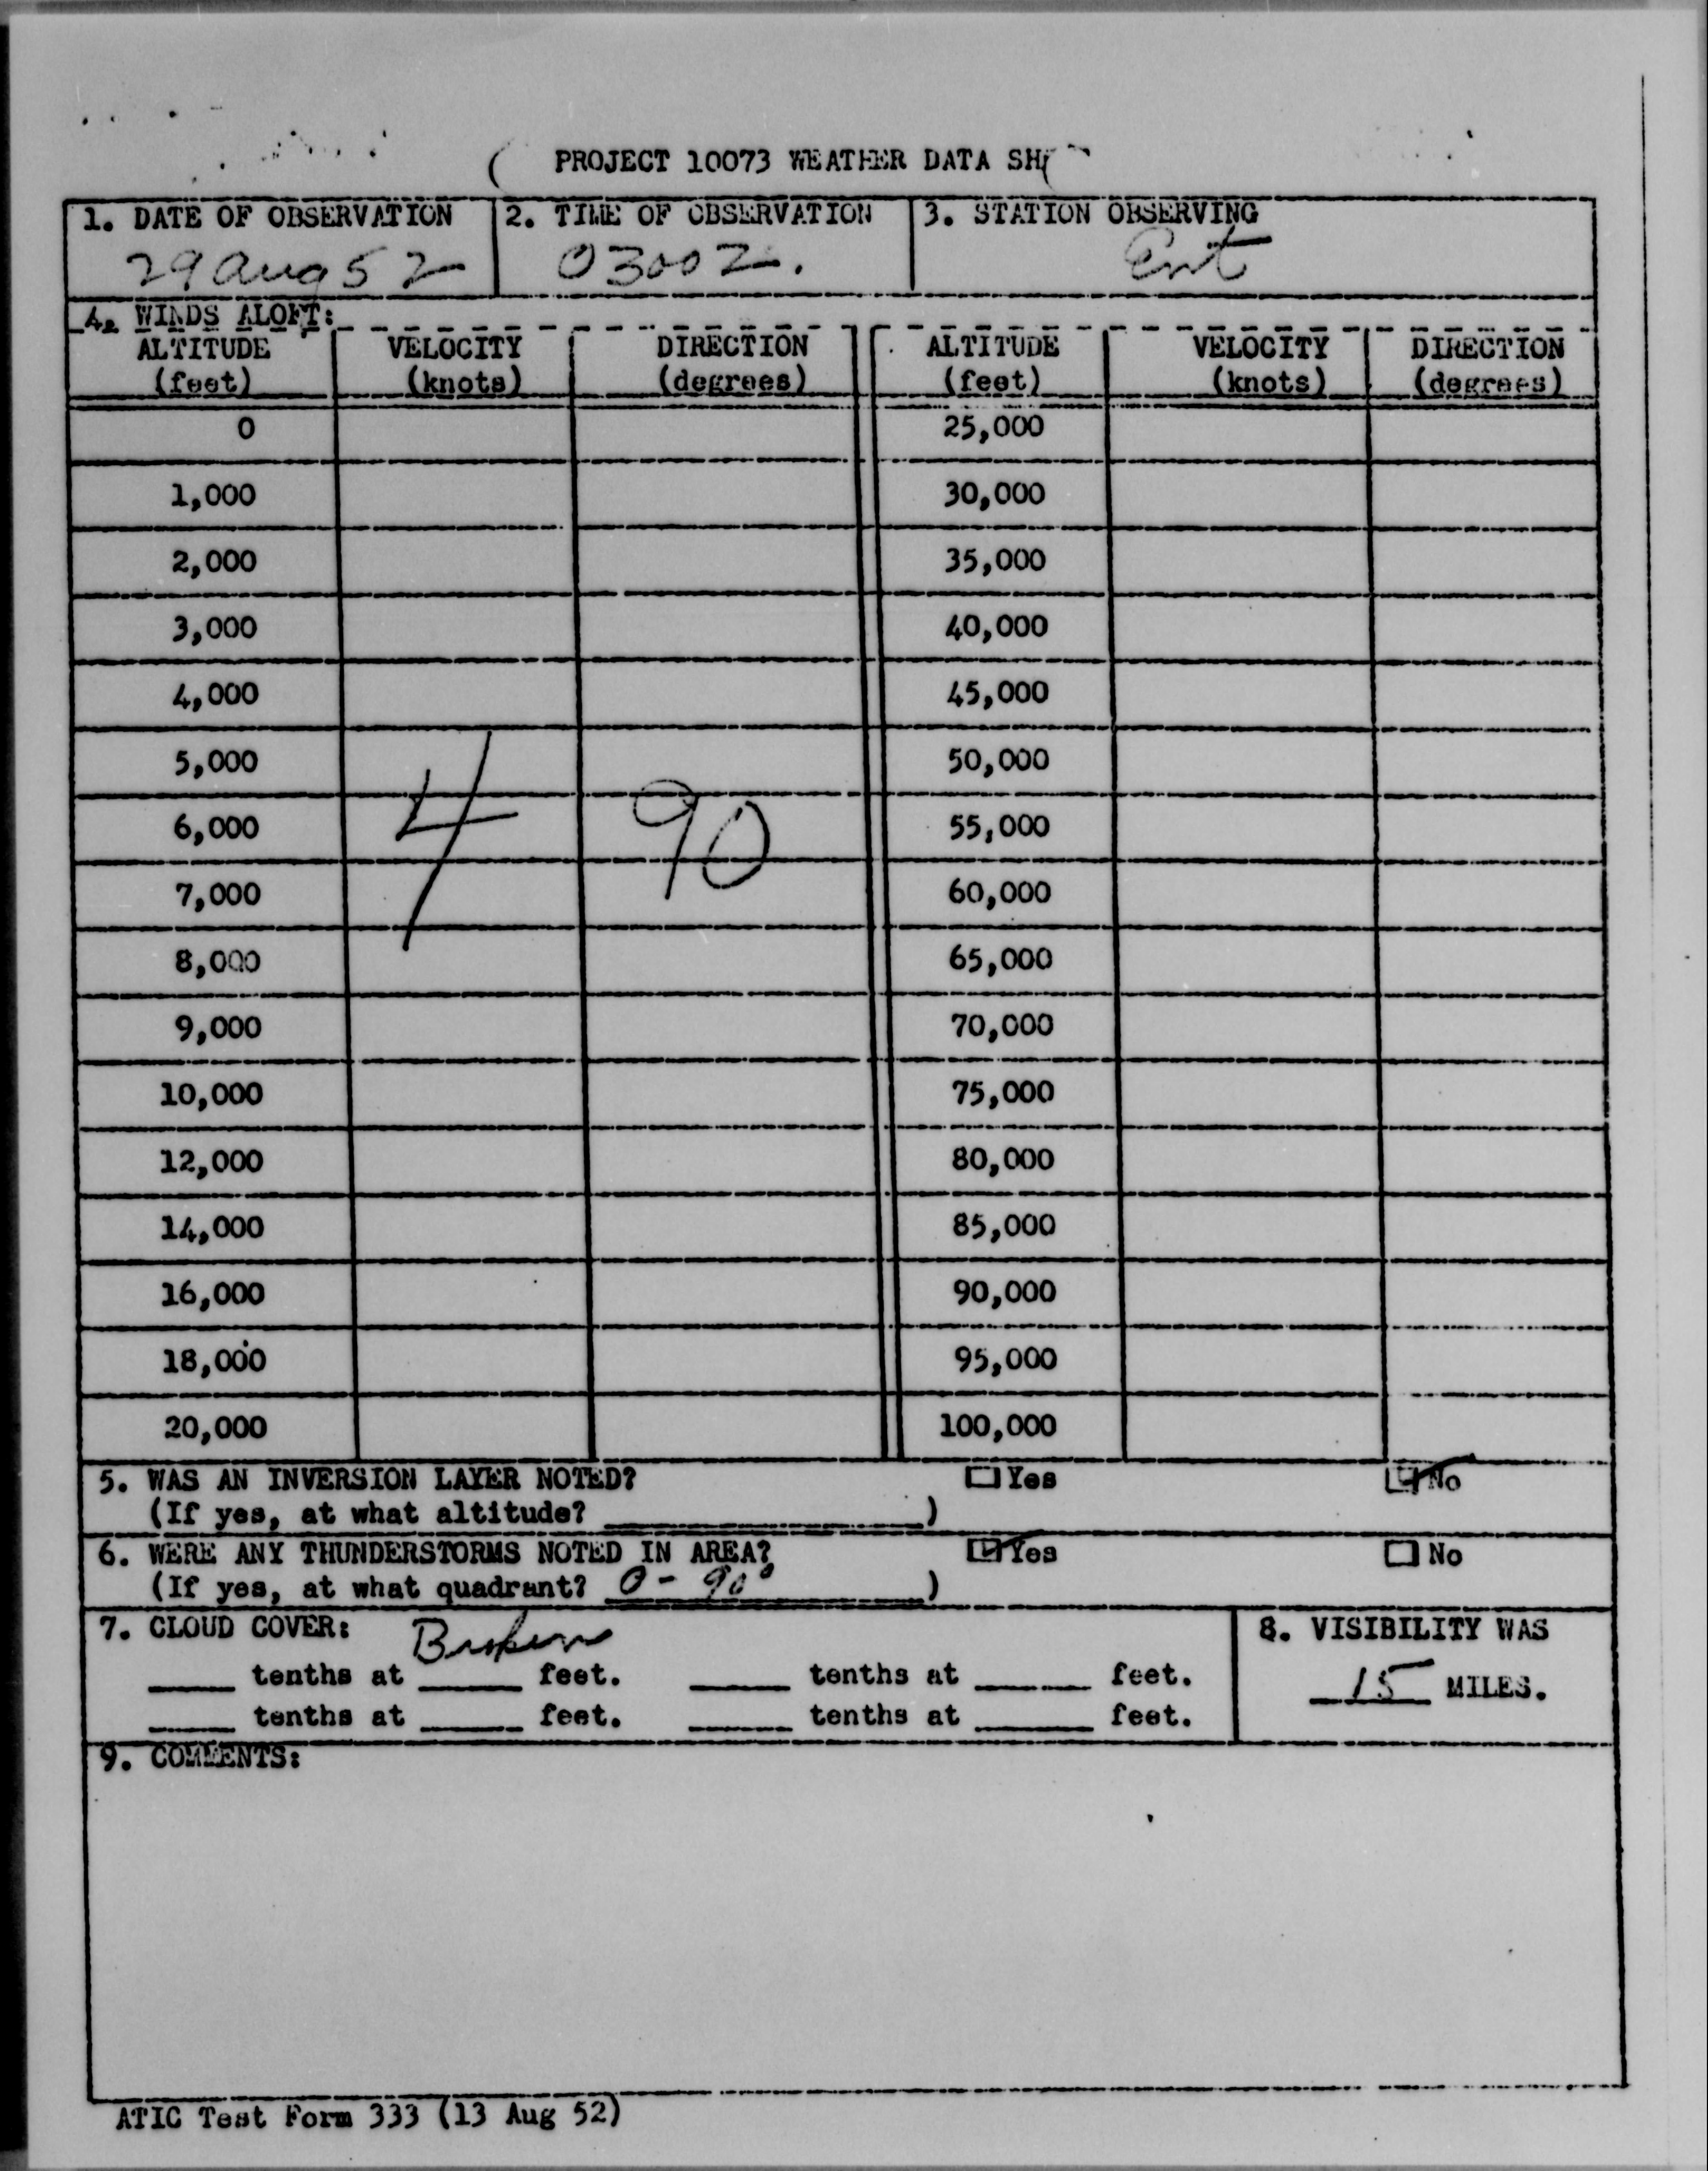 PROJECT 10073 WEATHER DATA SH
1. DATE OF OBSERVATION 2. TIME OF OBSERVATION 3. STATION OBSERVING
29 Aug 52 0300Z. Ent
4. WINDS ALOFT:
ALTITUDE VELOCITY DIRECTION ALTITUDE VELOCITY DIRECTION
(feet) (knots) (degrees) (feet) (knots) (degrees)
0 25,000
1,000 30,000
2,000 35,000
3,000 40,000
4,000 45,000
5,000 50,000
6,000 4 90 55,000
7,000 60,000
8,000 65,000
9,000 70,000
10,000 75,000
12,000 80,000
14,000 85,000
16,000 90,000
18,000 95,000
20,000 100,000
5. WAS AN INVERSION LAYER NOTED? Yes No
(If yes, at what altitude? )
6. WERE ANY THUNDERSTORMS NOTED IN AREA? Yes No
(If yes, at what quadrant? 0 - 90° )
7. CLOUD COVER: Broken 8. VISIBILITY WAS
tenths at feet. tenths at feet. 15 MILES.
tenths at feet. tenths at feet.
9. COMMENTS:
ATIC Test Form 333 (13 Aug 52)